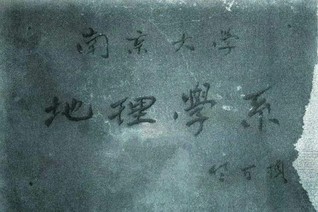 南京大学
地理學系